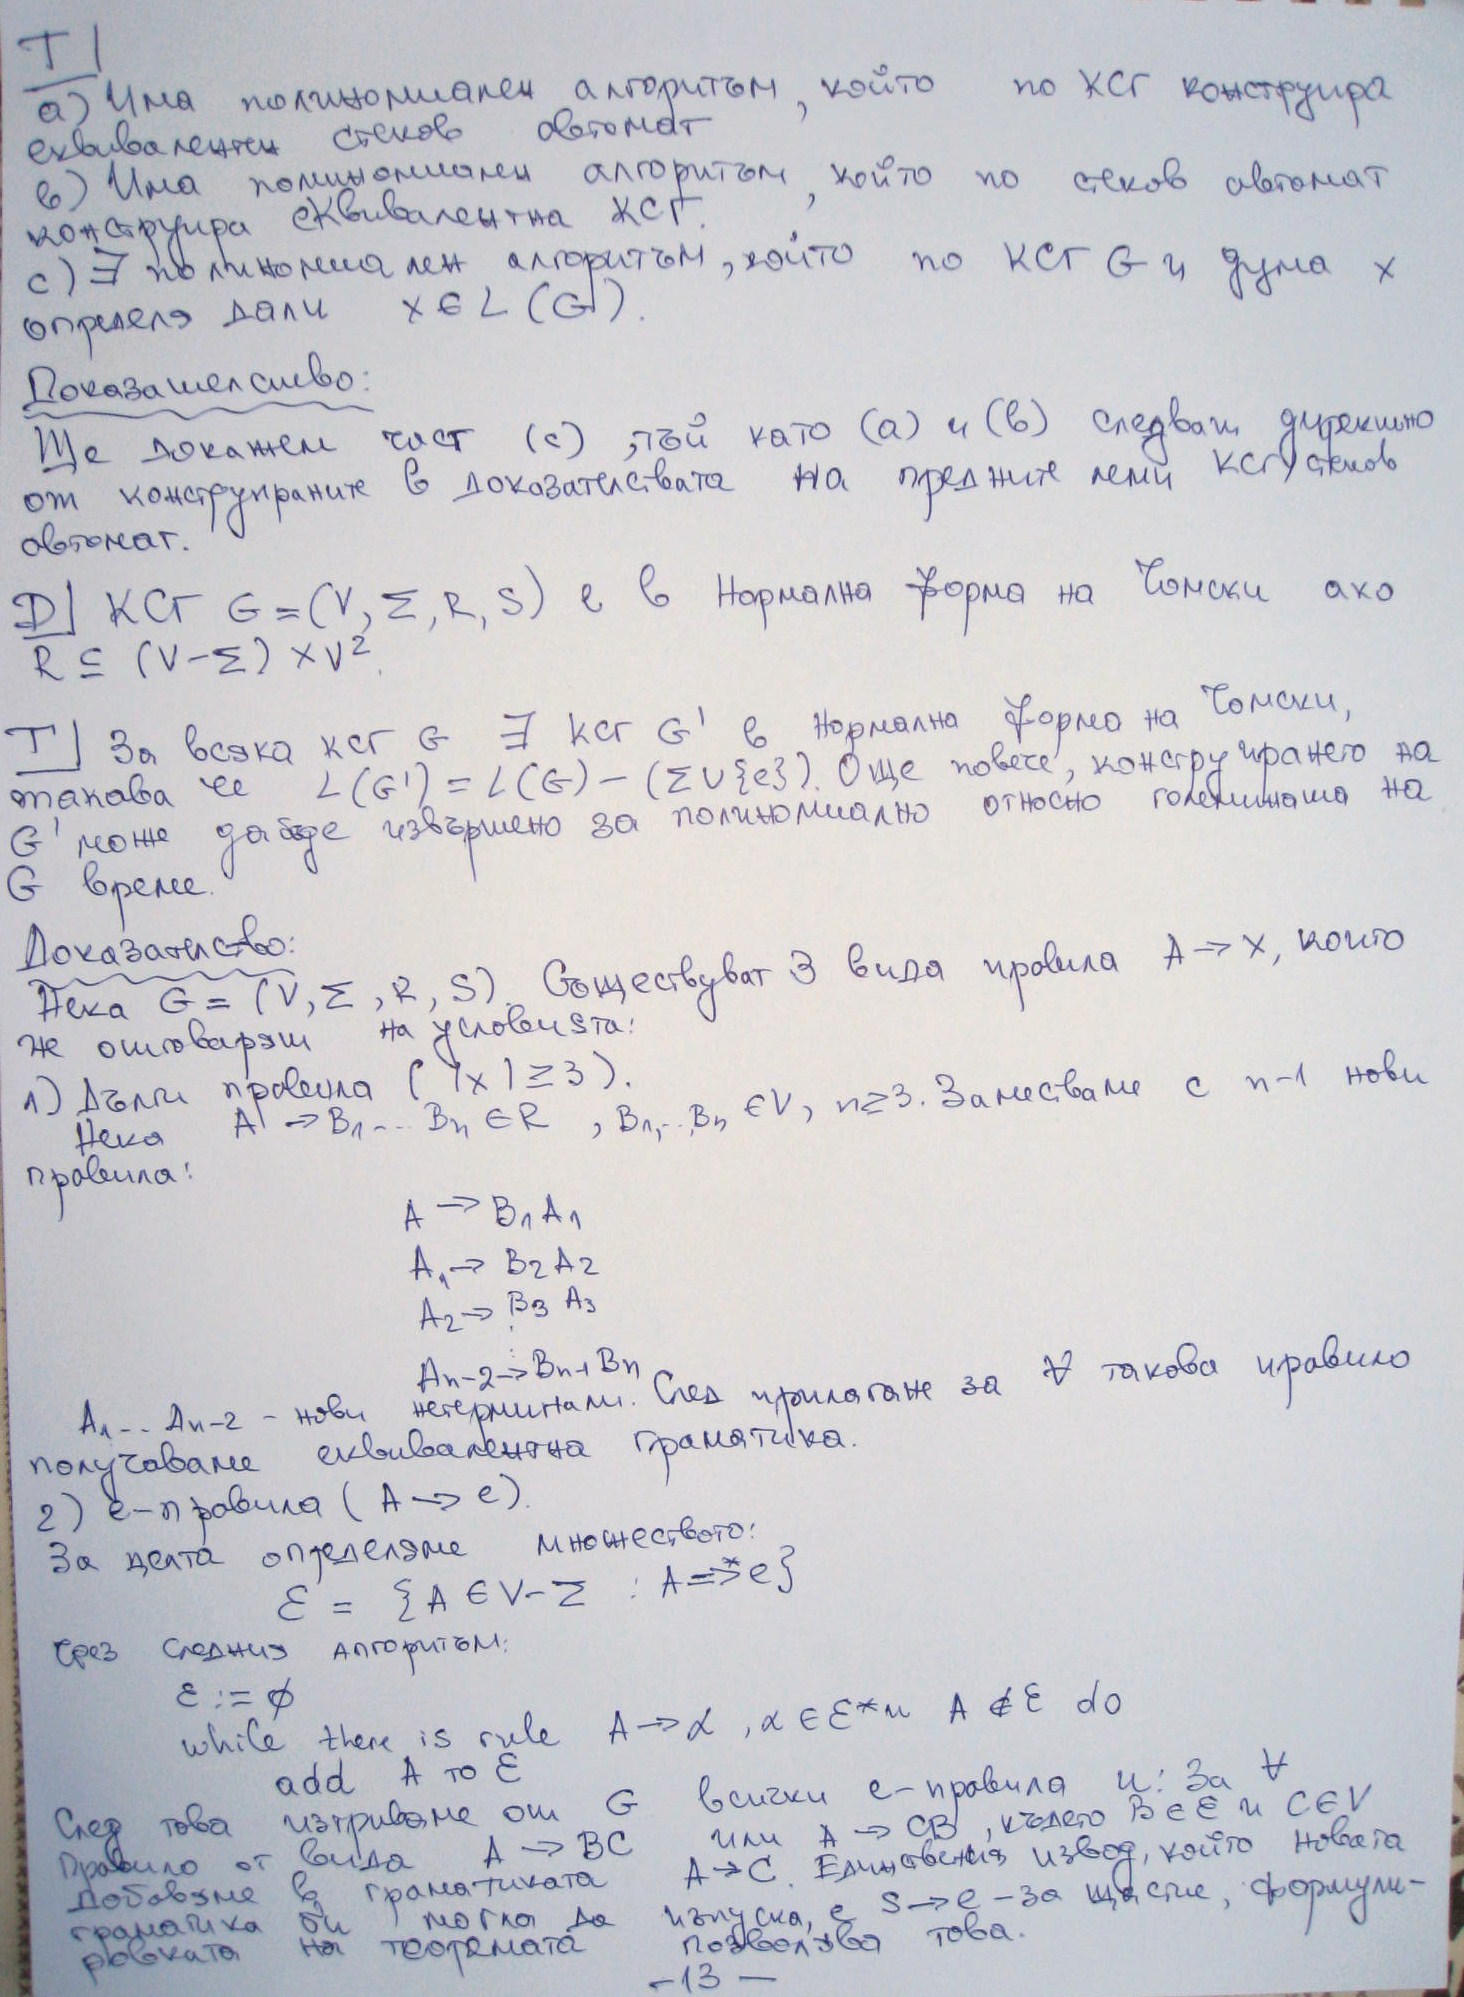 Т|
а) Има полиномиален алгоритъм, който по КСГ конструира
еквивалентен стеков автомат
в) Има полиномиален алгоритъм, който по стеков автомат
конструира еквивалентна КСГ.
с) ∃ полиномиален алгоритъм, който по КСГ G и дума x
определя дали x ∈ L(G).
Доказателство:
Ще докажем част (с), тъй като (а) и (в) следват директно
от конструираните в доказателствата на предните леми КСГ/стеков
автомат.
D| КСГ G = (V, Σ, R, S) е в Нормална форма на Чомски ако
R ⊆ (V-Σ) × V².
Т| За всяка КСГ G ∃ КСГ G' в Нормална форма на Чомски,
такава че L(G') = L(G) - (Σ∪{e}). Още повече, конструирането на
G' може да бъде извършено за полиномиално относно големината на
G време.
Доказателство:
Нека G = (V, Σ, R, S). Съществуват 3 вида правила A → x, които
не отговарят на условията:
1) Дълги правила (|x| ≥ 3).
Нека A → B₁... Bₙ ∈ R , B₁,..,Bₙ ∈ V, n ≥ 3. Заместваме с n-1 нови
правила:
A → B₁ A₁
A₁ → B₂ A₂
A₂ → B₃ A₃
⋮
Aₙ₋₂ → Bₙ₋₁ Bₙ
A₁... Aₙ₋₂ - нови нетерминали. След прилагане за ∀ такова правило
получаваме еквивалентна граматика.
2) e-правила (A → e).
За целта определяме множеството:
ℰ = {A ∈ V-Σ : A ⇒* e}
чрез следния алгоритъм:
ℰ := ∅
while there is rule A → α , α ∈ ℰ* и A ∉ ℰ do
add A to ℰ
След това изтриваме от G всички e-правила и: За ∀
Правило от вида A → BC или A → CB, където B ∈ ℰ и C ∈ V
добавяме в граматиката A → C. Единствения извод, който новата
граматика би могла да изпуска, е S → e - за щастие, формули-
ровката на теоремата позволява това.
-13-